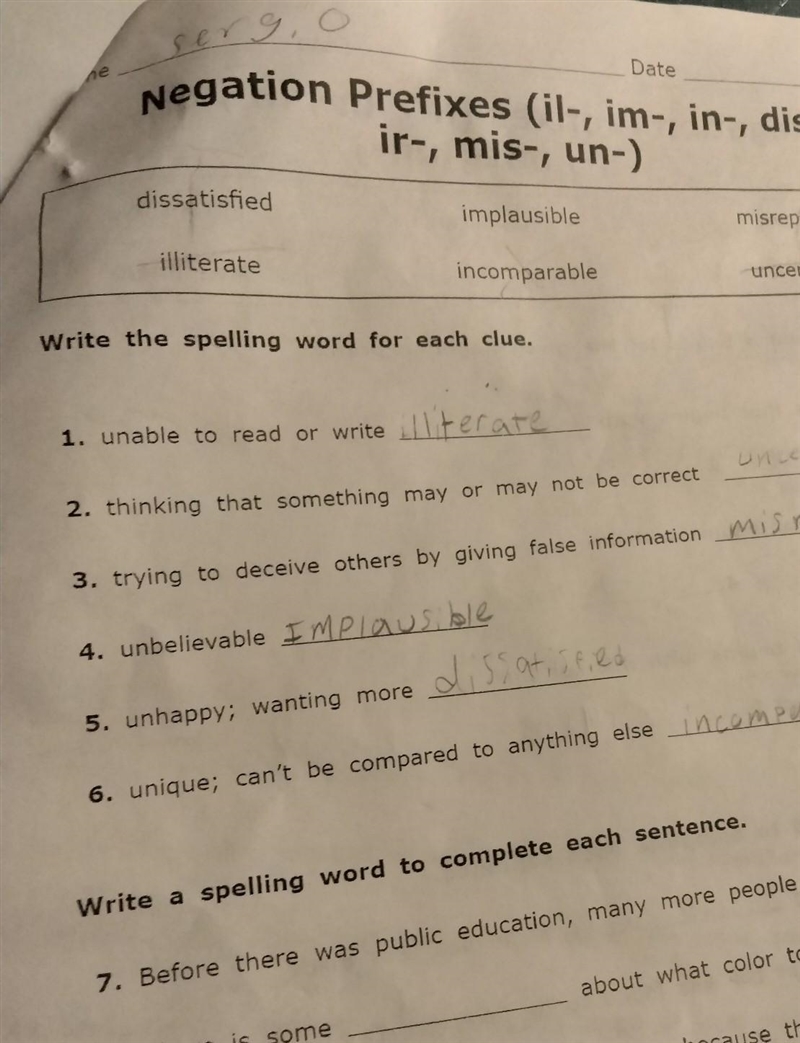 serg, O
Date
Negation Prefixes (il-, im-, in-, dis
ir-, mis-, un-)
dissatisfied implausible misrep
illiterate incomparable uncer
Write the spelling word for each clue.
1. unable to read or write illiterate
2. thinking that something may or may not be correct unce
3. trying to deceive others by giving false information misr
4. unbelievable Implausible
5. unhappy; wanting more dissatisfied
6. unique; can't be compared to anything else incompa
Write a spelling word to complete each sentence.
7. Before there was public education, many more people
is some about what color to
because th